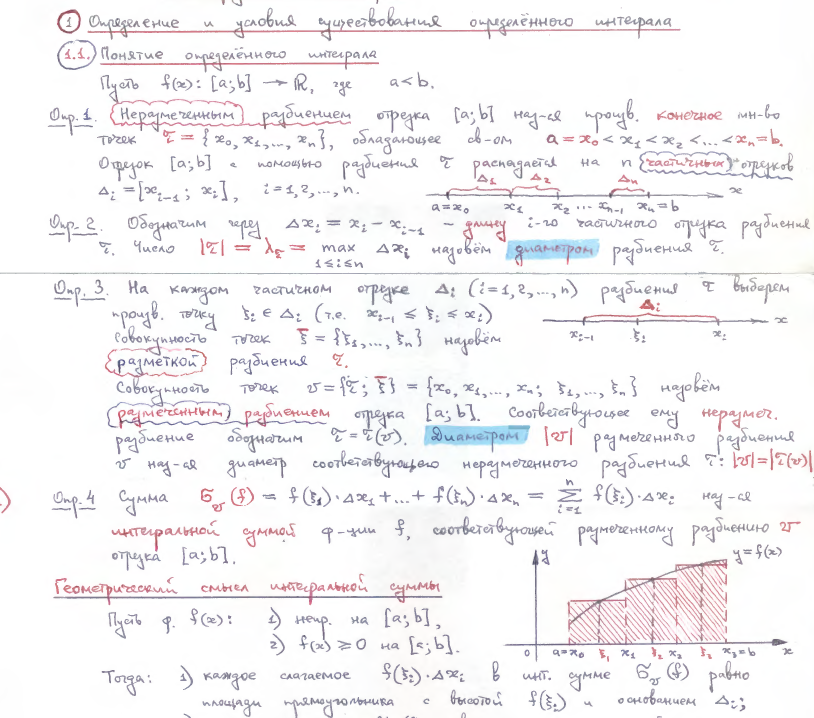 ① Определение и условия существования определённого интеграла
1.1. Понятие определённого интеграла
Пусть f(x): [a; b] → ℝ, где a < b.
Опр. 1. Неразмеченным разбиением отрезка [a; b] наз-ся произв. конечное мн-во
точек τ = {x₀, x₁, ..., xₙ}, обладающее св-ом a = x₀ < x₁ < x₂ < ... < xₙ = b.
Отрезок [a; b] с помощью разбиения τ распадается на n частичных отрезков
Δᵢ = [xᵢ₋₁; xᵢ], i = 1, 2, ..., n.
Δ₁ Δ₂ Δₙ
a = x₀ x₁ x₂ ... xₙ₋₁ xₙ = b x
Опр. 2. Обозначим через Δxᵢ = xᵢ - xᵢ₋₁ – длину i-го частичного отрезка разбиения
τ. Число |τ| = λ_τ = max Δxᵢ назовём диаметром разбиения τ.
1≤i≤n
Опр. 3. На каждом частичном отрезке Δᵢ (i = 1, 2, ..., n) разбиения τ выберем
произв. точку ξᵢ ∈ Δᵢ (т.е. xᵢ₋₁ ≤ ξᵢ ≤ xᵢ)
Δᵢ
xᵢ₋₁ ξᵢ xᵢ x
Совокупность точек ξ̄ = {ξ₁, ..., ξₙ} назовём
разметкой разбиения τ.
Совокупность точек v = {τ; ξ̄} = {x₀, x₁, ..., xₙ; ξ₁, ..., ξₙ} назовём
размеченным разбиением отрезка [a; b]. Соответствующее ему неразмеч.
разбиение обозначим τ = τ(v). Диаметром |v| размеченного разбиения
v наз-ся диаметр соответствующего неразмеченного разбиения τ: |v| = |τ(v)|
Опр. 4 Сумма σ_v(f) = f(ξ₁)·Δx₁ + ... + f(ξₙ)·Δxₙ = ∑ᵢ₌₁ⁿ f(ξᵢ)·Δxᵢ наз-ся
интегральной суммой ф-ции f, соответствующей размеченному разбиению v
отрезка [a; b].
Геометрический смысл интегральной суммы
Пусть ф. f(x): 1) непр. на [a; b],
2) f(x) ≥ 0 на [a; b].
y y = f(x)
0 a = x₀ ξ₁ x₁ ξ₂ x₂ ξ₃ x₃ = b x
Тогда: 1) каждое слагаемое f(ξᵢ)·Δxᵢ в инт. сумме σ_v(f) равно
площади прямоугольника с высотой f(ξᵢ) и основанием Δᵢ;